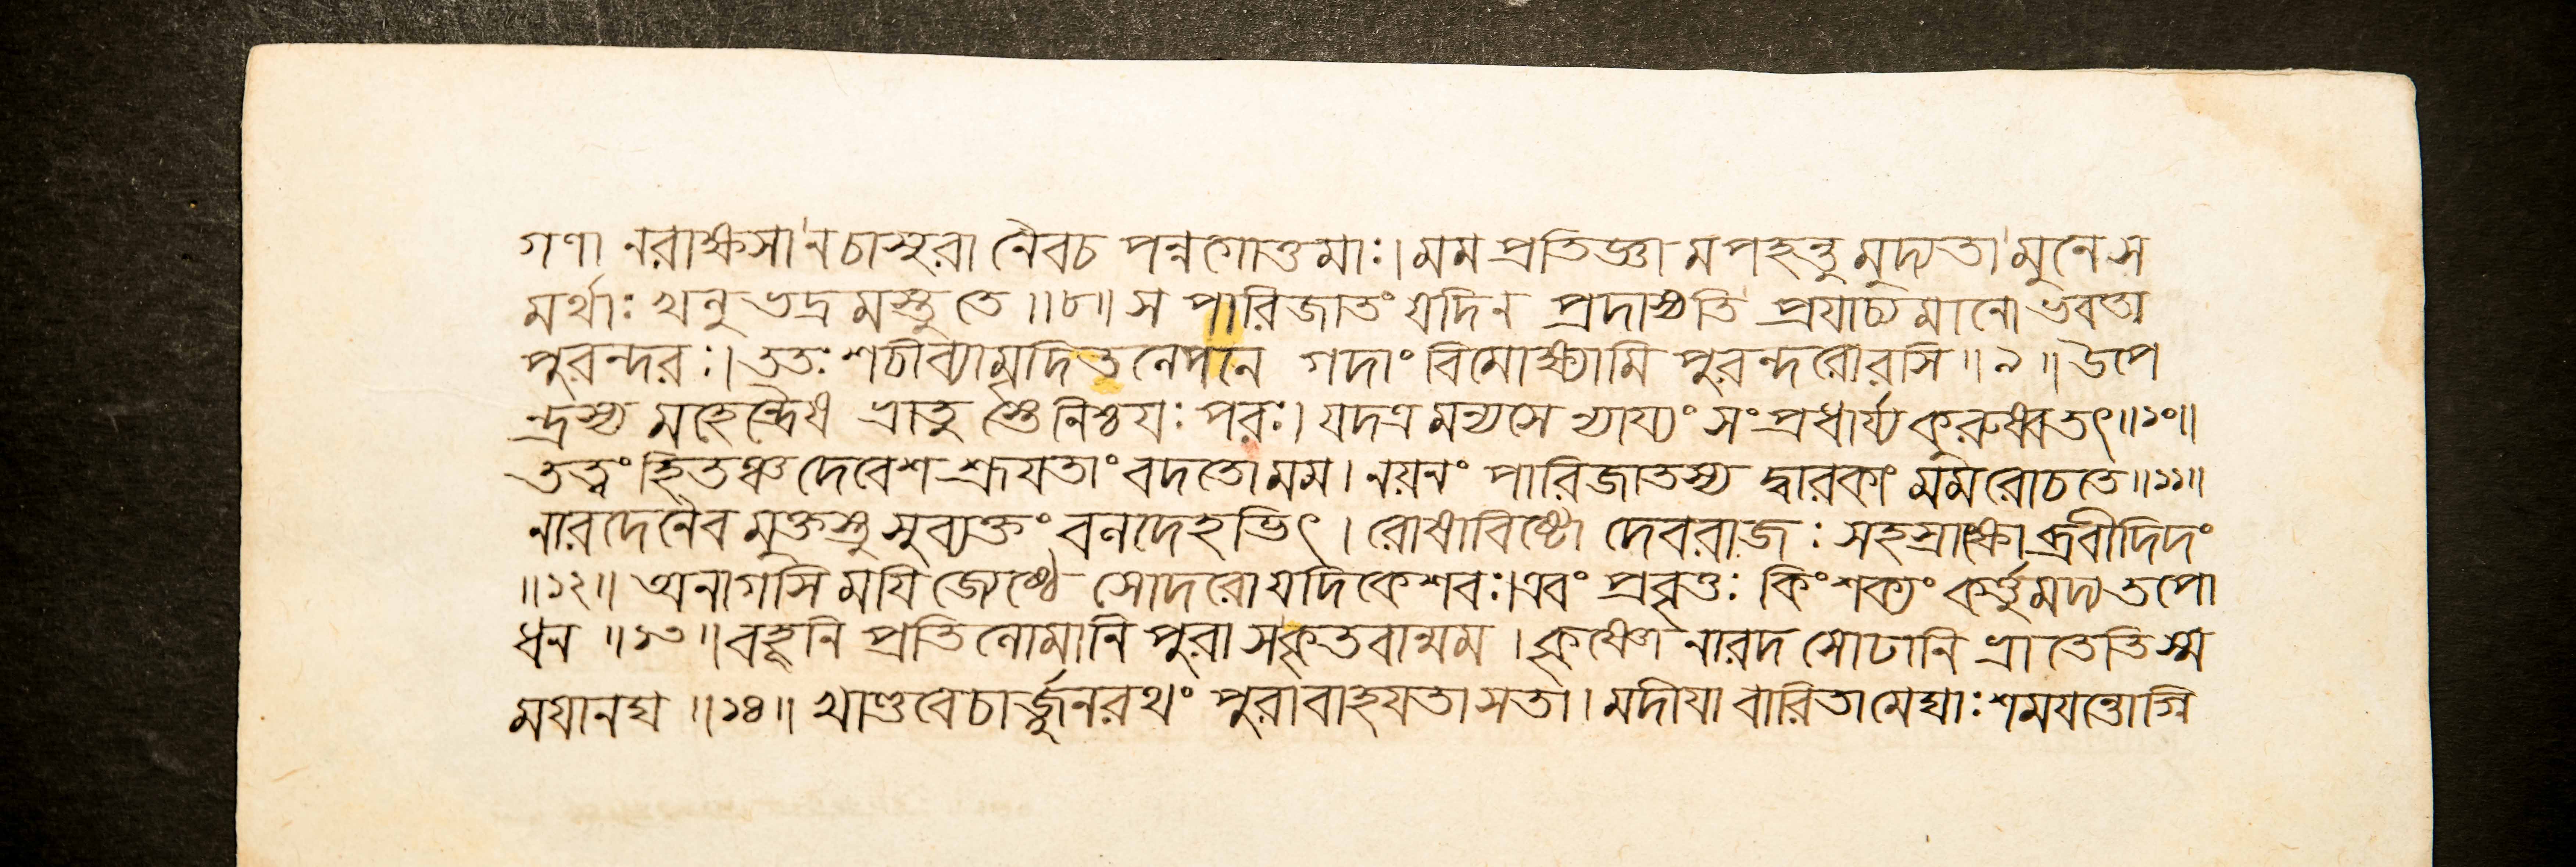 গণা নরাক্ষসা নচাসুরা নৈবচ পন্নগোত্তমাঃ। মম প্রতিজ্ঞা মপহন্তু মুদ্যতা মুনে স
মর্থাঃ খলু ভদ্র মস্তু তে ॥৮॥ স পারিজাতং যদিন প্রদাস্যতি প্রযাচ্যমানো ভবতা
পুরন্দরঃ। ততঃ শচীব্যামৃদিতানেপনে গদাং বিমোক্ষ্যামি পুরন্দরোরসি ॥ ৯ ॥ উপে
ন্দ্রস্য মহেন্দ্রৈষ ভ্রাতু স্তে নিশ্চযঃ পরঃ। যদত্র মন্যসে ন্যায্যং সংপ্রধার্য্য কুরুষ্বতৎ॥১০॥
তত্ত্বং হিতঞ্চ দেবেশ শ্রূযতাং বদতো মম। নয়নং পারিজাতস্য দ্বারকাং মম রোচতে॥১১॥
নারদেনৈব মুক্তস্তু সুব্যক্তং বলদেহভিৎ। রোষাবিষ্টো দেবরাজঃ সহস্রাক্ষোব্রবীদিদং
॥১২॥ অনাগসি মযি জ্যেষ্ঠে সোদরো যদি কেশবঃ। এবং প্রবৃত্তঃ কিং শক্যং কর্ত্তুমদ্য তপো
ধন ॥১৩॥ বহূনি প্রতিলোমানি পুরা সকৃতবান্মম। কৃষ্ণো নারদ সোঢানি ভ্রাতেতি স্ম
মযানঘ ॥১৪॥ খাণ্ডবেচার্জ্জুনরথং পুরাবাহযতা সতা। মদীযা বারিতামেঘাঃ শমযন্তোগ্নি